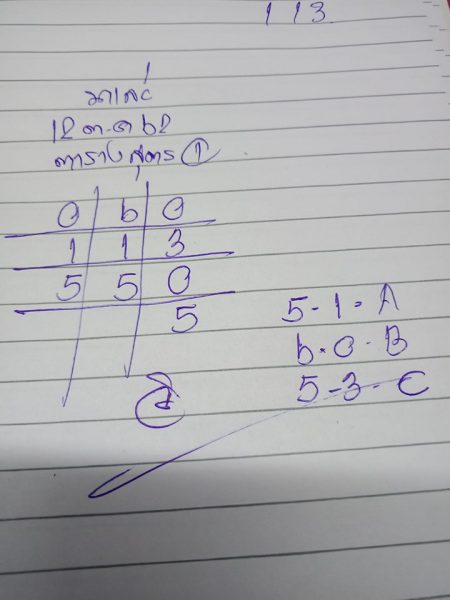 1 1 3
12 ต.ค 62
ตารางสูตร 1
0 6 0
1 1 3
5 5 0
5
5 - 1 - A
6 - 0 - B
5 - 3 - C